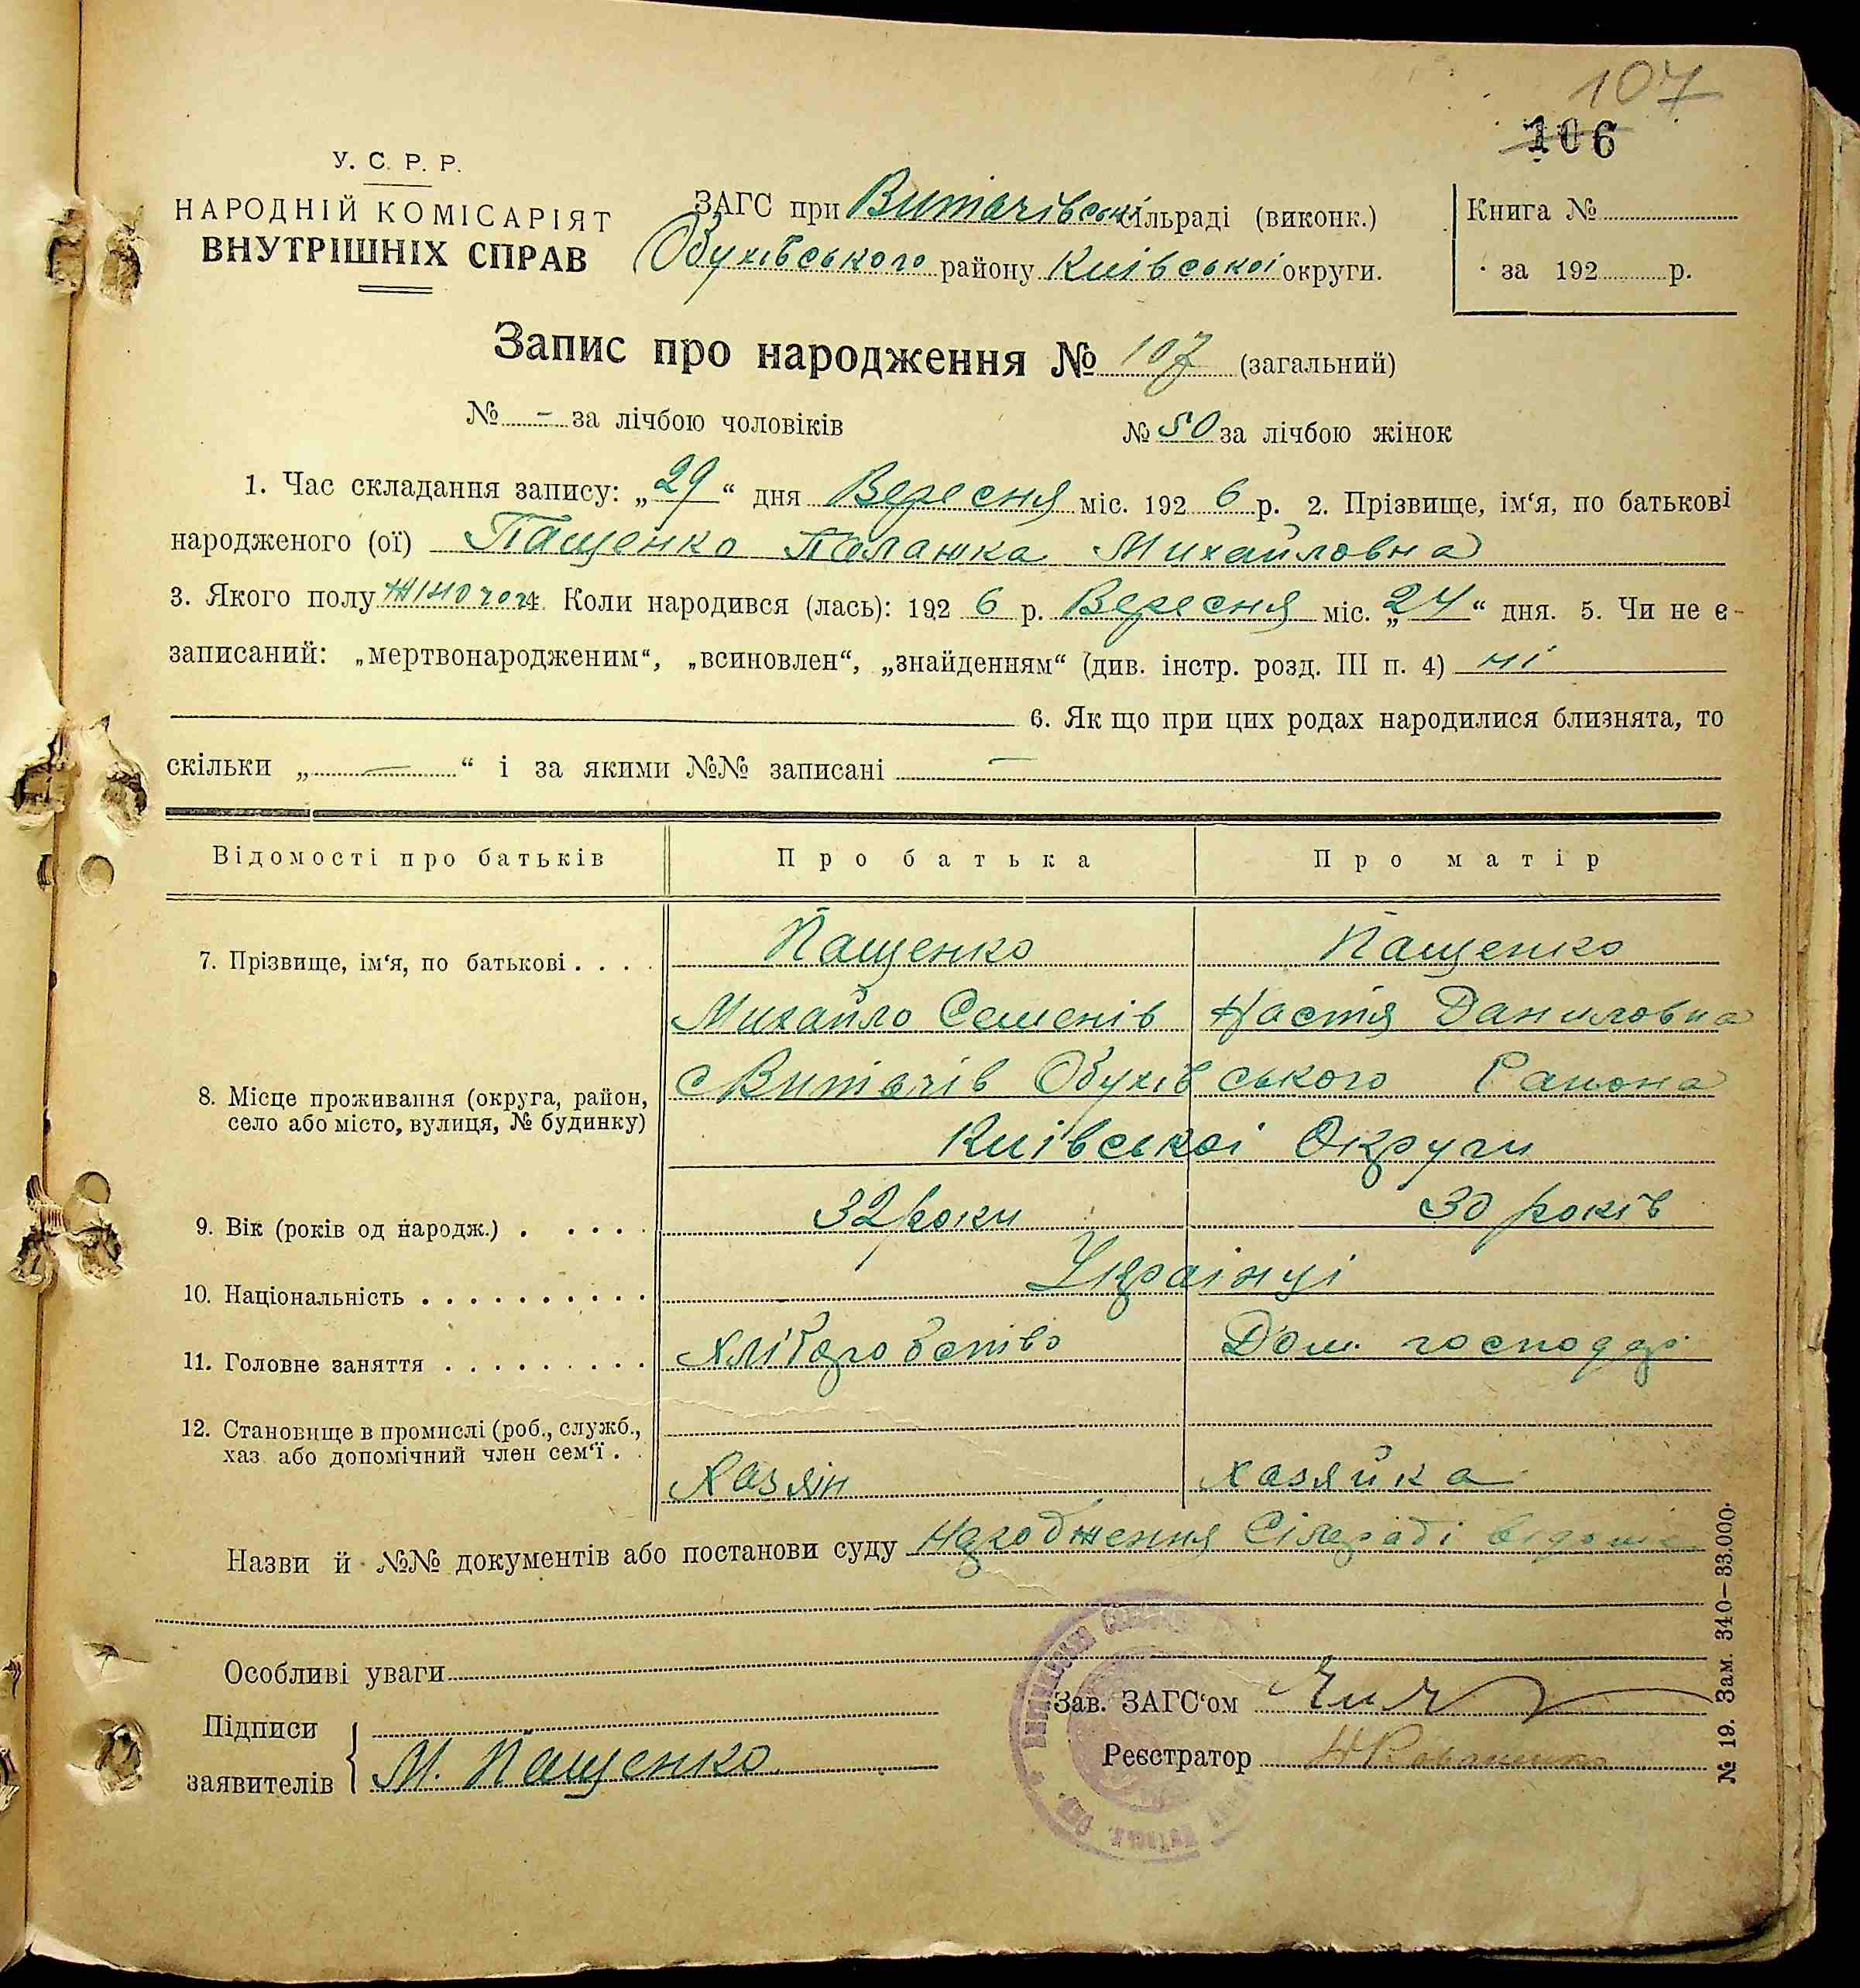 107
106
У. С. Р. Р.
НАРОДНІЙ КОМІСАРІЯТ
ВНУТРІШНІХ СПРАВ
ЗАГС при Витачівській сільраді (виконк.)
Обухівського району Київської округи.
Книга №
за 192 р.
Запис про народження № 107 (загальний)
№ - за лічбою чоловіків № 50 за лічбою жінок
1. Час складання запису: „29“ дня Вересня міс. 192 6 р. 2. Прізвище, ім‘я, по батькові
народженого (ої) Пащенко Палажка Михайловна
3. Якого полу жіночог 4. Коли народився (лась): 192 6 р. Вересня міс. „24“ дня. 5. Чи не є-
записаний: „мертвонародженим“, „всиновлен“, „знайденням“ (див. інстр. розд. III п. 4) ні
6. Як що при цих родах народилися близнята, то
скільки „—“ і за якими №№ записані —
Відомості про батьків Про батька Про матір
7. Прізвище, ім‘я, по батькові . . . . Пащенко Пащенко
Михайло Семенів Настя Даниловна
8. Місце проживання (округа, район, село або місто, вулиця, № будинку) с Витачів Обухівського Района
Київської Округи
9. Вік (років од народж.) . . . . . 32 роки 30 років
10. Національність . . . . . . . . . . Українці
11. Головне заняття . . . . . . . . . Хліборобство Дом. господар
12. Становище в промислі (роб., служб.,
хаз. або допомічний член сем‘ї . . Хазяін хазяйка
Назви й №№ документів або постанови суду Народження Сілераді відоміє
Особливі уваги
Підписи
заявителів М. Пащенко
Зав. ЗАГС‘ом
Реєстратор
№ 19. Зам. 340—33.000.